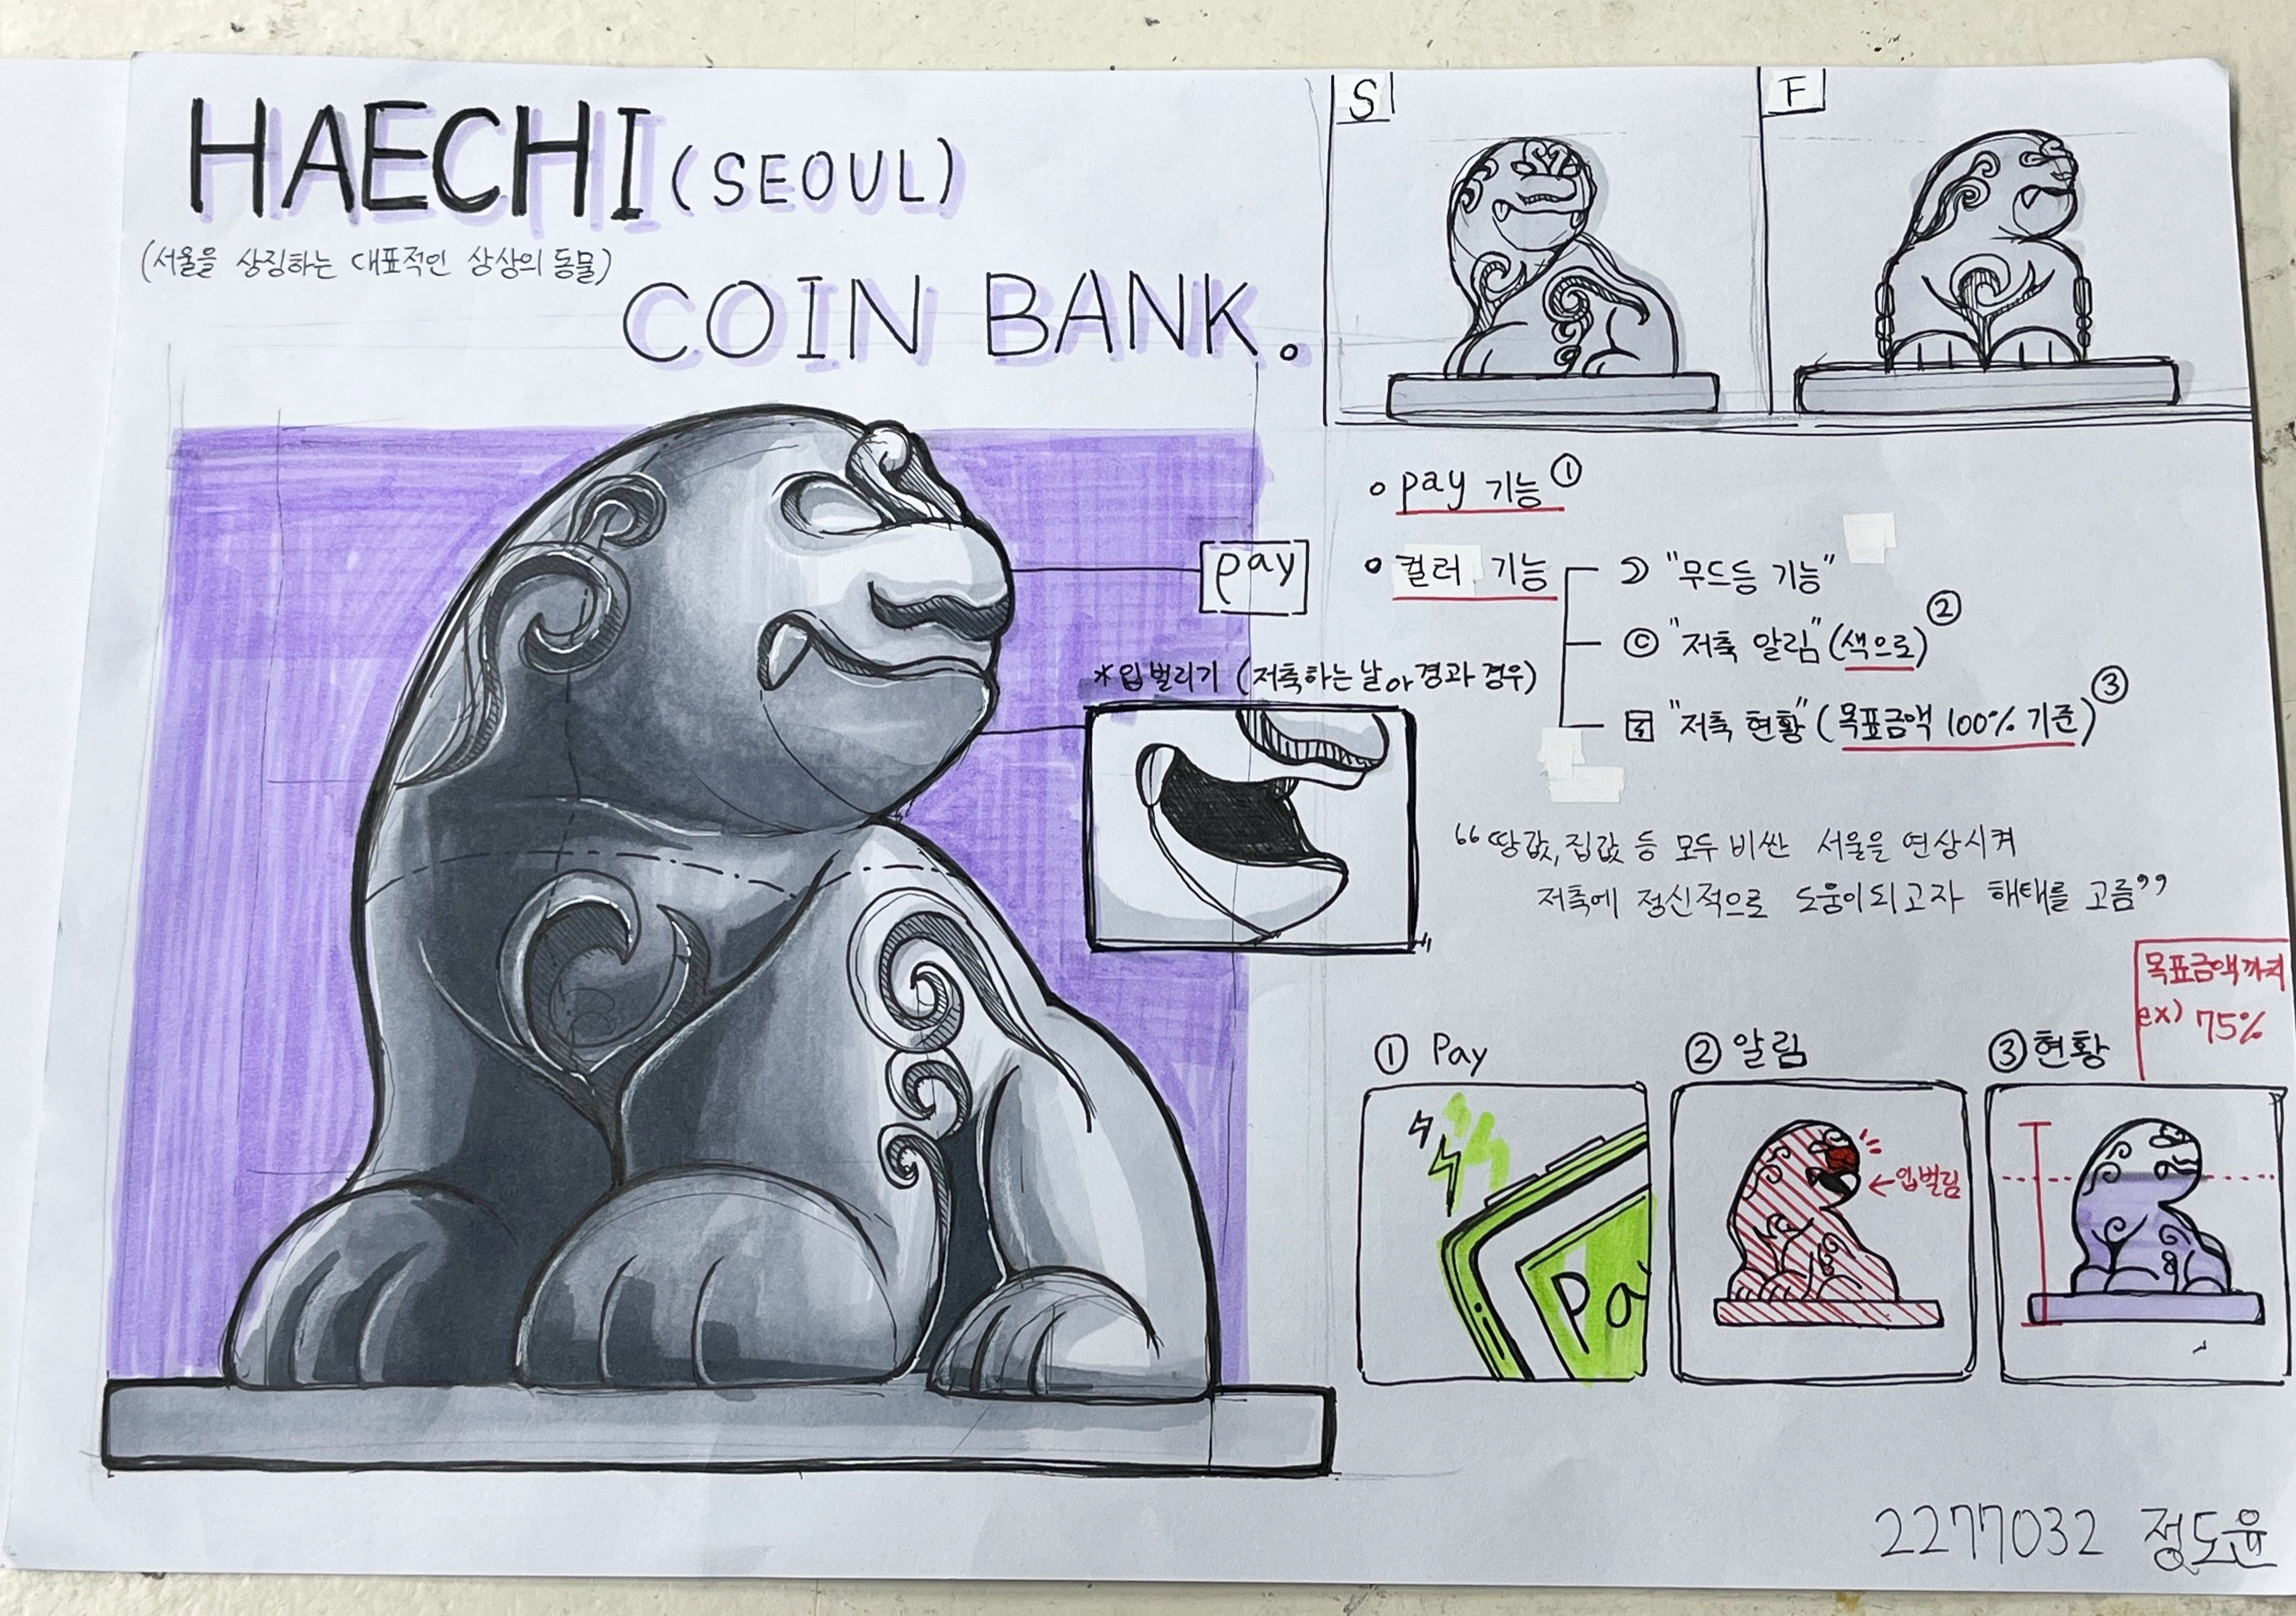 HAECHI (SEOUL)
(서울을 상징하는 대표적인 상상의 동물)
COIN BANK.
S
F
pay
*입벌리기 (저축하는 날 아 경과 경우)
○ pay 기능 ①
○ 컬러 기능
"무드등 기능"
© "저축 알림" (색으로) ②
"저축 현황" (목표금액 100% 기준) ③
“땅값, 집값 등 모두 비싼 서울을 연상시켜
저축에 정신적으로 도움이되고자 해태를 고름”
목표금액까지
ex) 75%
① Pay
② 알림
③ 현황
Pa
← 입벌림
2277032 정도윤